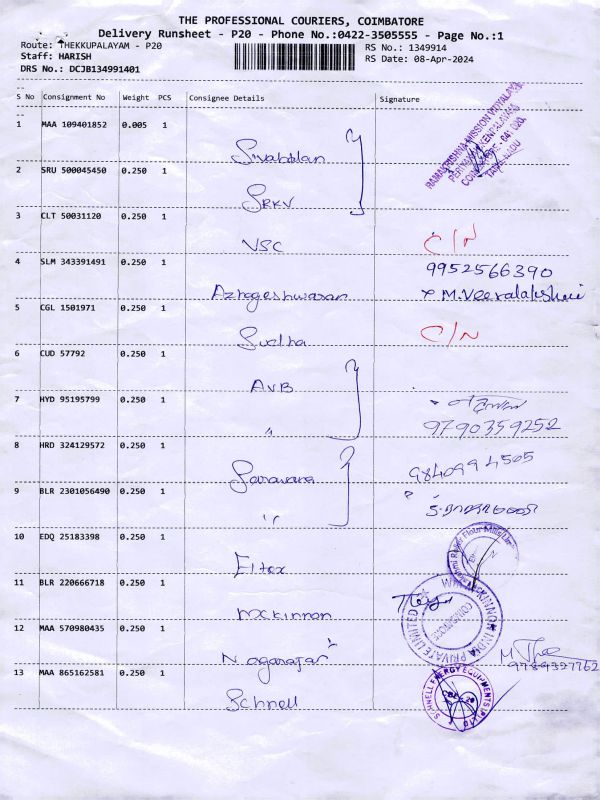 THE PROFESSIONAL COURIERS, COIMBATORE
Delivery Runsheet - P20 - Phone No.:0422-3505555 - Page No.:1
Route: THEKKUPALAYAM - P20
RS No.: 1349914
Staff: HARISH
RS Date: 08-Apr-2024
DRS No.: DCJB134991401
S No Consignment No Weight PCS Consignee Details Signature
1 MAA 109401852 0.005 1
RAMAKRISHNA MISSION VIDYALAYA
COIMBATORE - 641 020.
TAMILNADU
2 SRU 500045450 0.250 1
SRKV
3 CLT 50031120 0.250 1
VSC C/N
4 SLM 343391491 0.250 1
9952566390
Azhageshwaran M.Veeralakshmi
5 CGL 1501971 0.250 1
Sudha C/N
6 CUD 57792 0.250 1
AVB
7 HYD 95195799 0.250 1
" 9790359252
8 HRD 324129572 0.250 1
Saravana 9840994505
9 BLR 2301056490 0.250 1
"
10 EDQ 25183398 0.250 1
Eltex
11 BLR 220666718 0.250 1
Mckinnon
INDIA PRIVATE LIMITED
COIMBATORE
12 MAA 570980435 0.250 1
Nagarajar
13 MAA 865162581 0.250 1
Schnell
SCHNELL ENERGY EQUIPMENTS (P) LTD